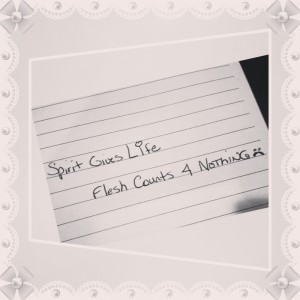 Spirit Gives Life
Flesh Counts 4 Nothing